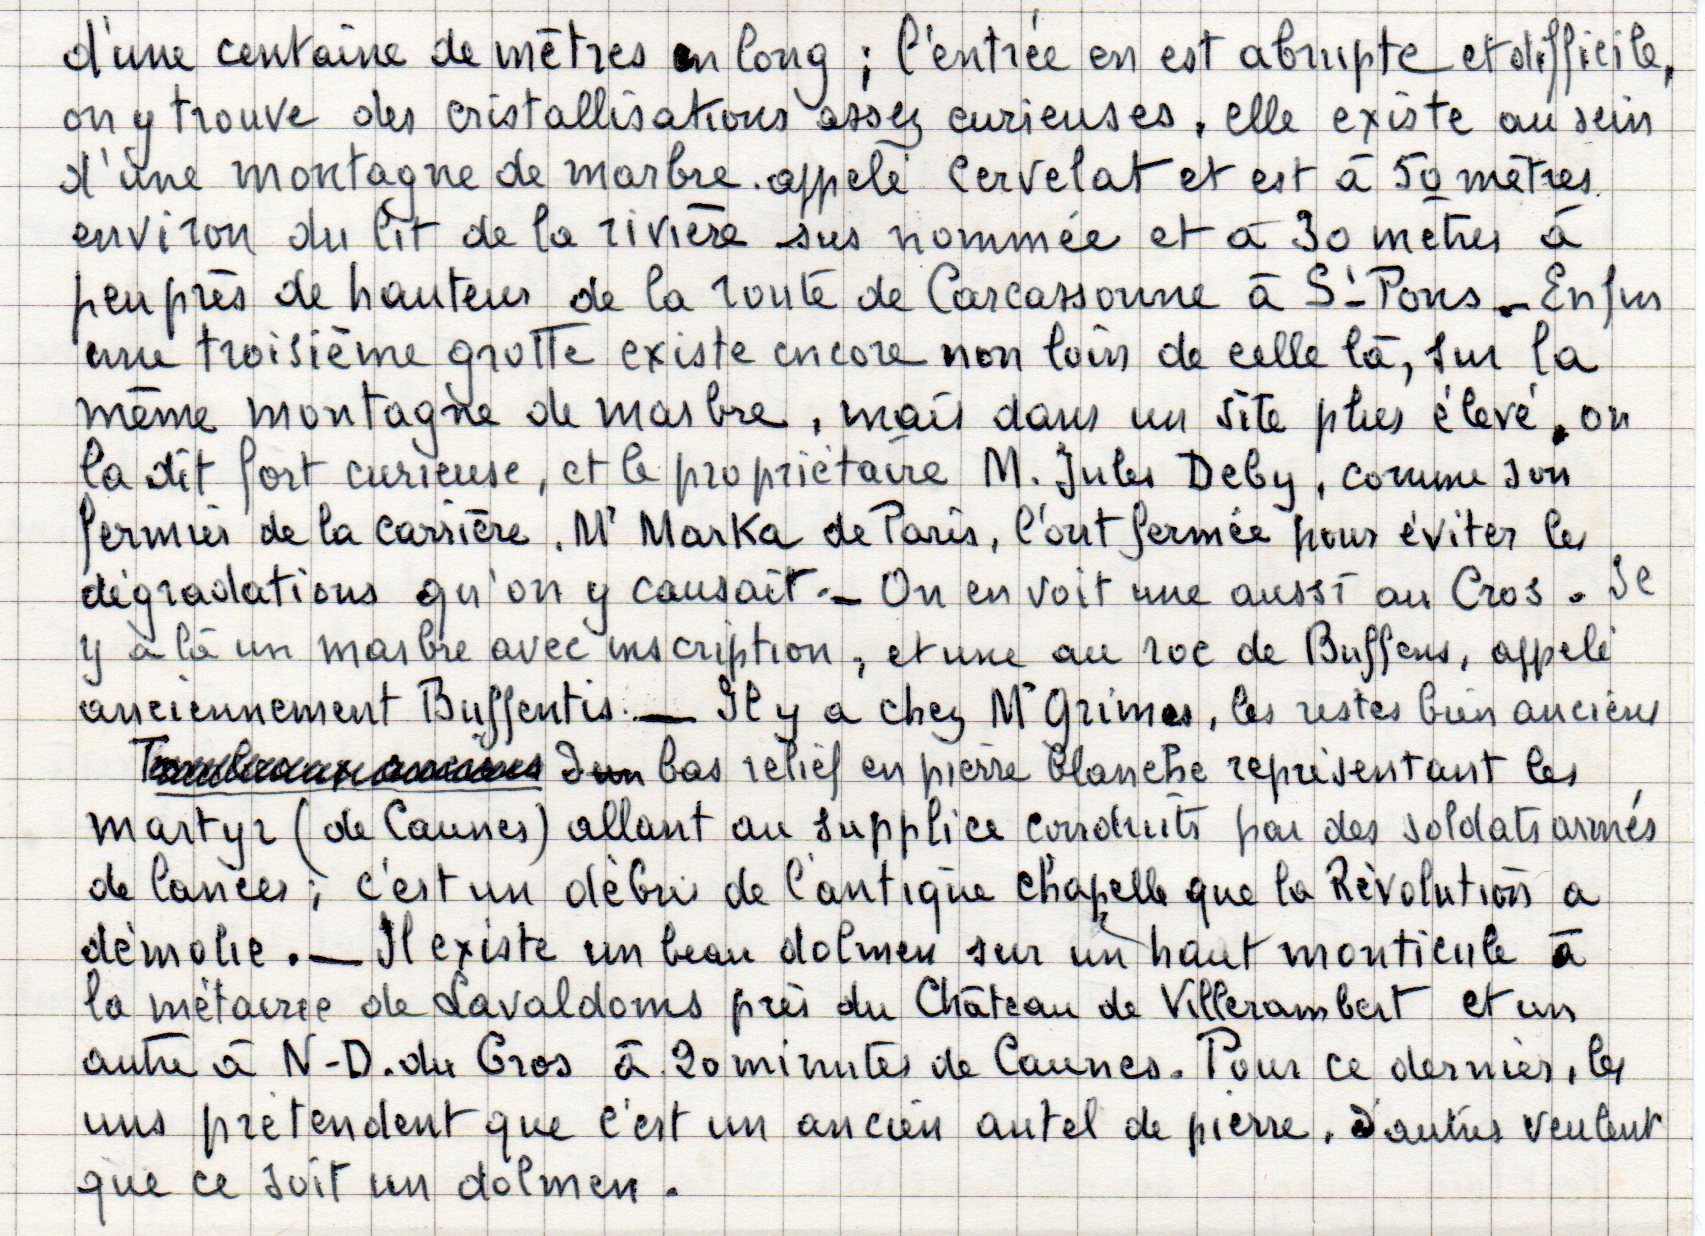 d'une centaine de mètres en long ; l'entrée en est abrupte et difficile,
on y trouve des cristallisations assez curieuses, elle existe au sein
d'une montagne de marbre appelé Cervelat et est à 50 mètres
environ du lit de la rivière sus nommée et à 30 mètres à
peu près de hauteur de la route de Carcassonne à St-Pons. – Enfin
une troisième grotte existe encore non loin de celle là, sur la
même montagne de marbre, mais dans un site plus élevé, on
la dit fort curieuse, et le propriétaire M. Jules Deby, comme son
fermier de la carrière, Mr Marka de Paris, l'ont fermée pour éviter les
dégradations qu'on y causait. – On en voit une aussi au Cros. Il
y à là un marbre avec inscription, et une au roc de Buffens, appelé
anciennement Buffentis. — Il y a chez Mr Grimes, les restes bien anciens
d'un bas relief en pierre blanche représentant les
martyr (de Caunes) allant au supplice conduits par des soldats armés
de lances ; c'est un débris de l'antique chapelle que la Révolution a
démolie. — Il existe un beau dolmen sur un haut monticule à
la métairie de Lavaldoms près du Château de Villerambert et un
autre à N-D. du Cros à 20 minutes de Caunes. Pour ce dernier, les
uns prétendent que c'est un ancien autel de pierre, d'autres veulent
que ce soit un dolmen.